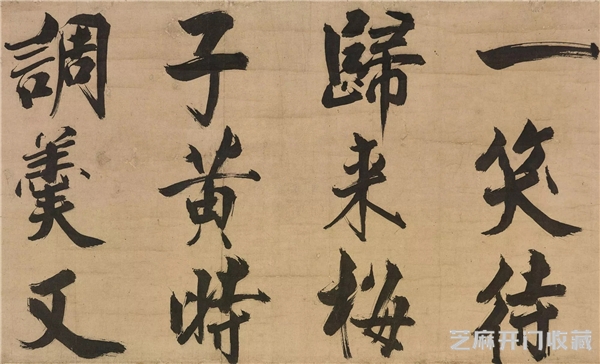 一笑待
歸来梅
子黄時
調羹又
芝麻开门收藏